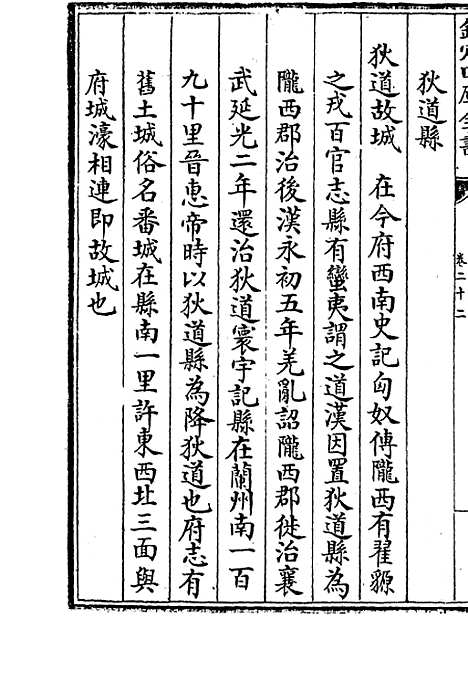 欽定四庫全書
卷二十二
狄道縣
狄道故城　在今府西南史記匈奴傳隴西有翟䝠
之戎百官志縣有蠻夷謂之道漢因置狄道縣為
隴西郡治後漢永初五年羌亂詔隴西郡徙治襄
武延光二年還治狄道寰宇記縣在蘭州南一百
九十里晉惠帝時以狄道縣為降狄道也府志有
舊土城俗名番城在縣南一里許東西北三面與
府城濠相連即故城也